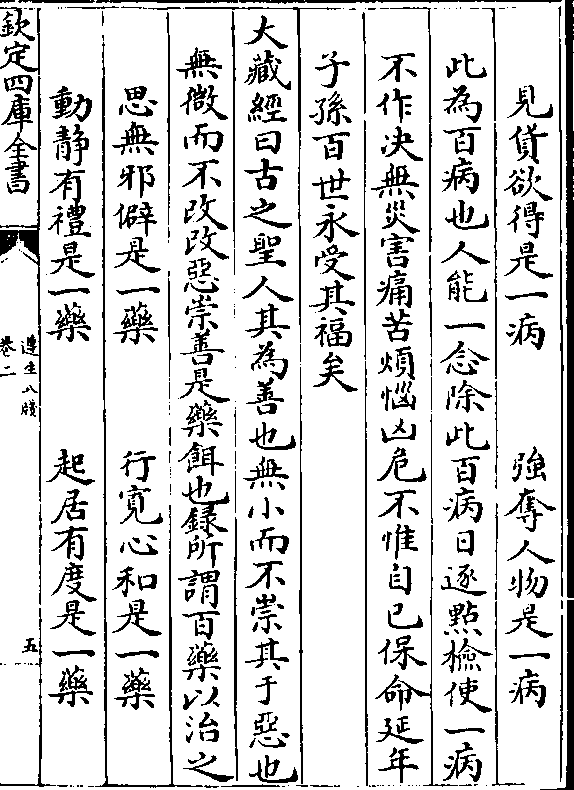 見貨欲得是一病　強奪人物是一病
此為百病也人能一念除此百病日逐點檢使一病
不作決無災害痛苦煩惱凶危不惟自已保命延年
子孫百世永受其福矣
大藏經曰古之聖人其為善也無小而不崇其于惡也
無微而不改改惡崇善是藥餌也錄所謂百藥以治之
思無邪僻是一藥　行寛心和是一藥
動靜有禮是一藥　起居有度是一藥
欽定四庫全書
遵生八牋
卷二
五